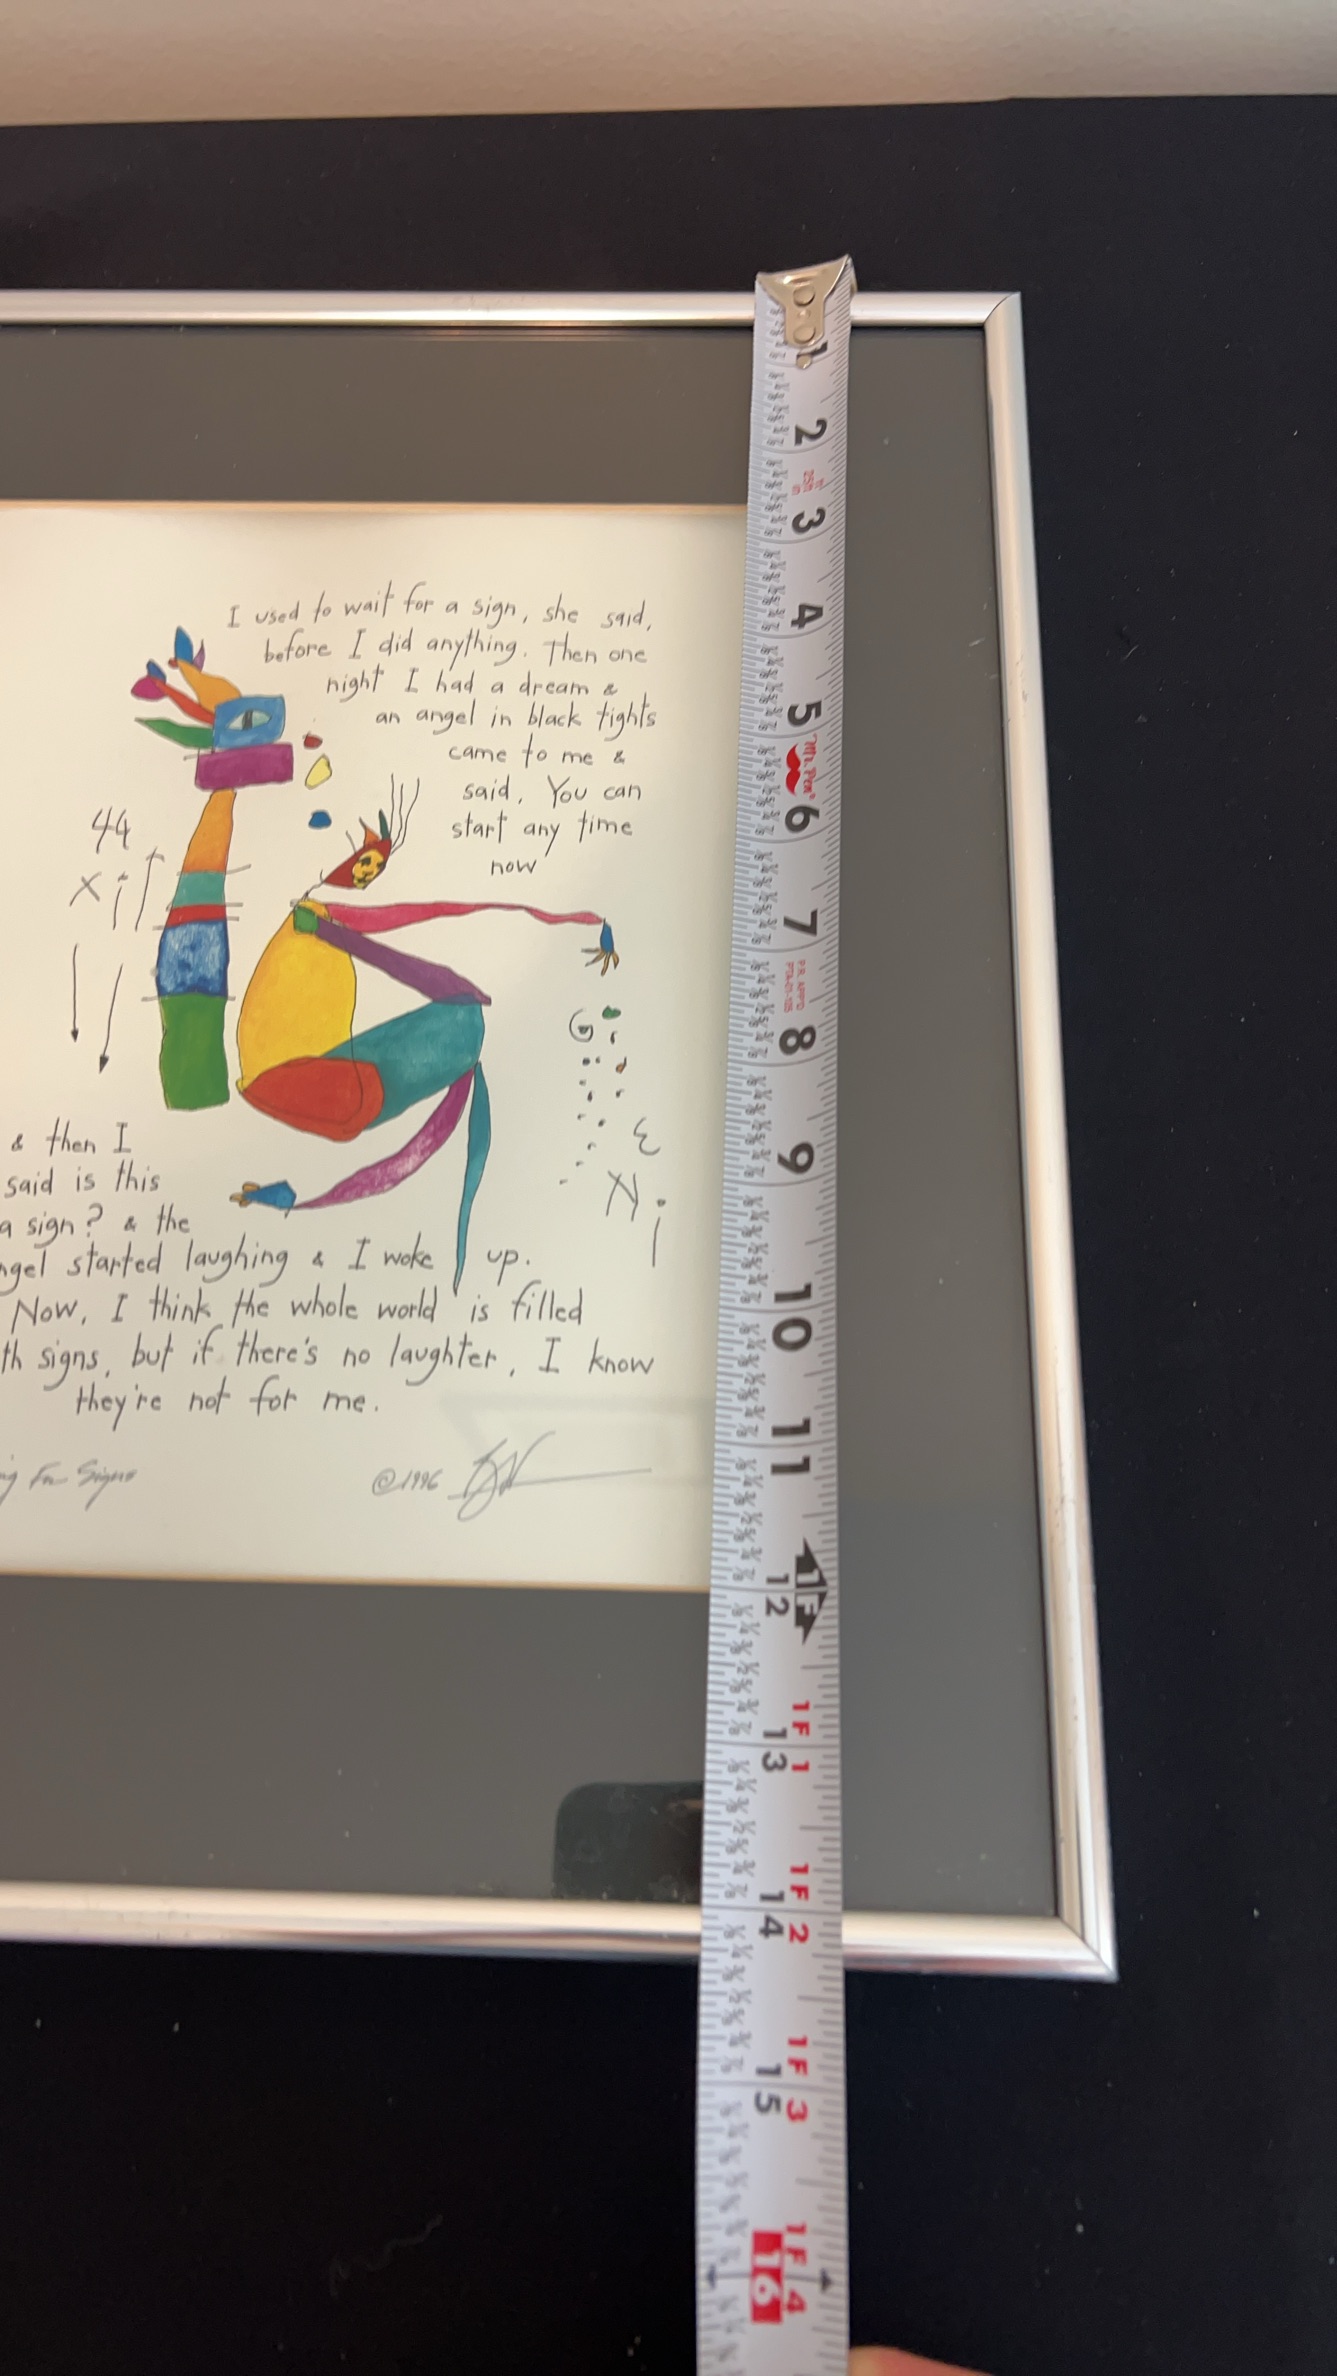 I used to wait for a sign, she said,
before I did anything. Then one
night I had a dream &
an angel in black tights
came to me &
said, You can
start any time
now
& then I
said is this
a sign? & the
ngel started laughing & I woke up.
Now, I think the whole world is filled
th signs, but if there's no laughter, I know
they're not for me.
g For Signs
©1996
1
2
3
4
5
Mr. Pen
6
7
8
9
10
11
1F
12
1F
13 1
1F
14 2
1F
15 3
1F
16 4